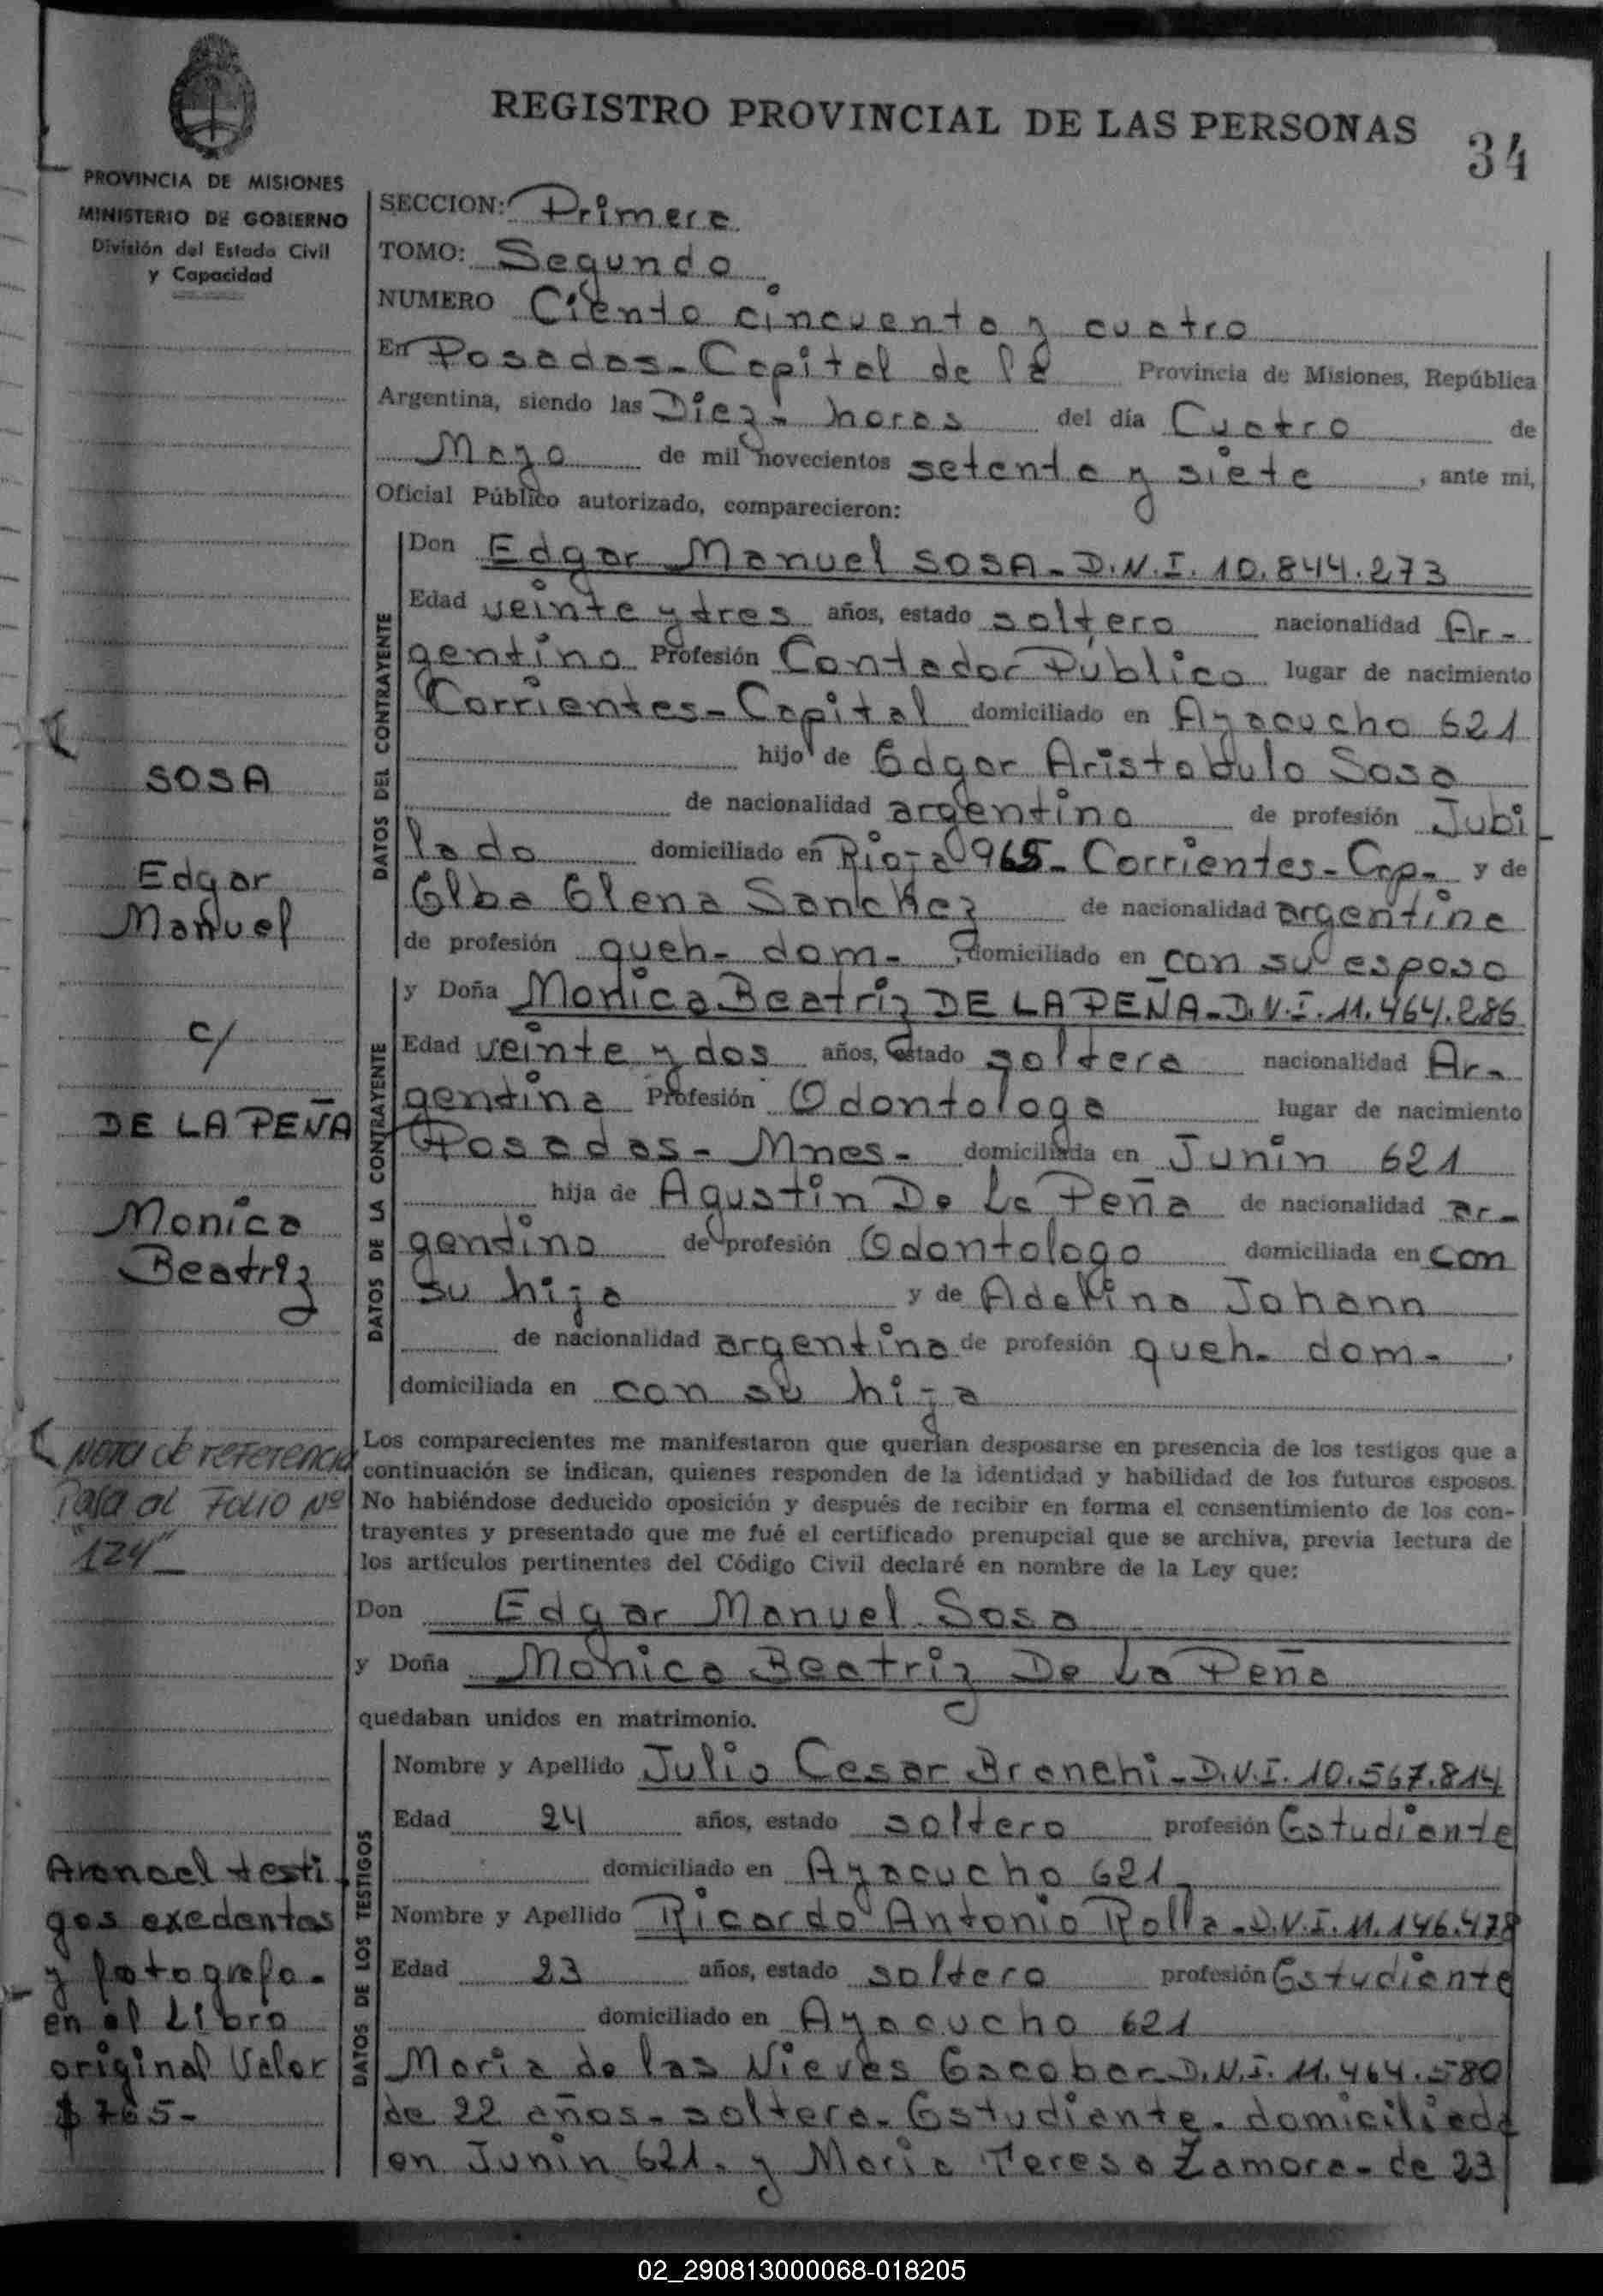 REGISTRO PROVINCIAL DE LAS PERSONAS
34
PROVINCIA DE MISIONES
MINISTERIO DE GOBIERNO
División del Estado Civil
y Capacidad
SECCION: Primera
TOMO: Segundo
NUMERO Ciento cincuenta y cuatro
En Posadas - Capital de la Provincia de Misiones, República
Argentina, siendo las Diez - horas del día Cuatro de
Mayo de mil novecientos setenta y siete, ante mi,
Oficial Público autorizado, comparecieron:
DATOS DEL CONTRAYENTE
Don Edgar Manuel SOSA - D.N.I. 10.844.273
Edad veinte y tres años, estado soltero nacionalidad Ar-
gentino Profesión Contador Público lugar de nacimiento
Corrientes - Capital domiciliado en Ayacucho 621
hijo de Edgar Aristobulo Sosa
de nacionalidad argentino de profesión Jubi
lado domiciliado en Rioja 965 - Corrientes - Cap - y de
Elba Elena Sanchez de nacionalidad argentina
de profesión queh - dom - , domiciliado en con su esposo
DATOS DE LA CONTRAYENTE
y Doña Monica Beatriz DE LA PEÑA - D.N.I. 11.464.286
Edad veinte y dos años, estado soltera nacionalidad Ar-
gentina Profesión Odontologa lugar de nacimiento
Posadas - Mnes - domiciliada en Junin 621
hija de Agustin De La Peña de nacionalidad ar-
gentino de profesión Odontologo domiciliada en con
su hija y de Adelina Johann
de nacionalidad argentina de profesión queh - dom - ,
domiciliada en con su hija
Los comparecientes me manifestaron que querían desposarse en presencia de los testigos que a
continuación se indican, quienes responden de la identidad y habilidad de los futuros esposos.
No habiéndose deducido oposición y después de recibir en forma el consentimiento de los con-
trayentes y presentado que me fué el certificado prenupcial que se archiva, previa lectura de
los artículos pertinentes del Código Civil declaré en nombre de la Ley que:
Don Edgar Manuel Sosa
y Doña Monica Beatriz De La Peña
quedaban unidos en matrimonio.
DATOS DE LOS TESTIGOS
Nombre y Apellido Julio Cesar Bronchi - D.N.I. 10.567.814
Edad 24 años, estado soltero profesión Estudiante
domiciliado en Ayacucho 621
Nombre y Apellido Ricardo Antonio Rolla - D.N.I. 11.146.478
Edad 23 años, estado soltero profesión Estudiante
domiciliado en Ayacucho 621
Maria de las Nieves Escobar - D.N.I. 11.464.580
de 22 años - soltera - Estudiante - domiciliada
en Junin 621 - y Maria Teresa Zamora - de 23
SOSA
Edgar
Manuel
c/
DE LA PEÑA
Monica
Beatriz
Nota de referencia
Pasa al FOLIO Nº
"124"
Arancel testi
gos exedentes
y fotografo -
en el Libro
original Valor
$ 765 -
02_290813000068-018205